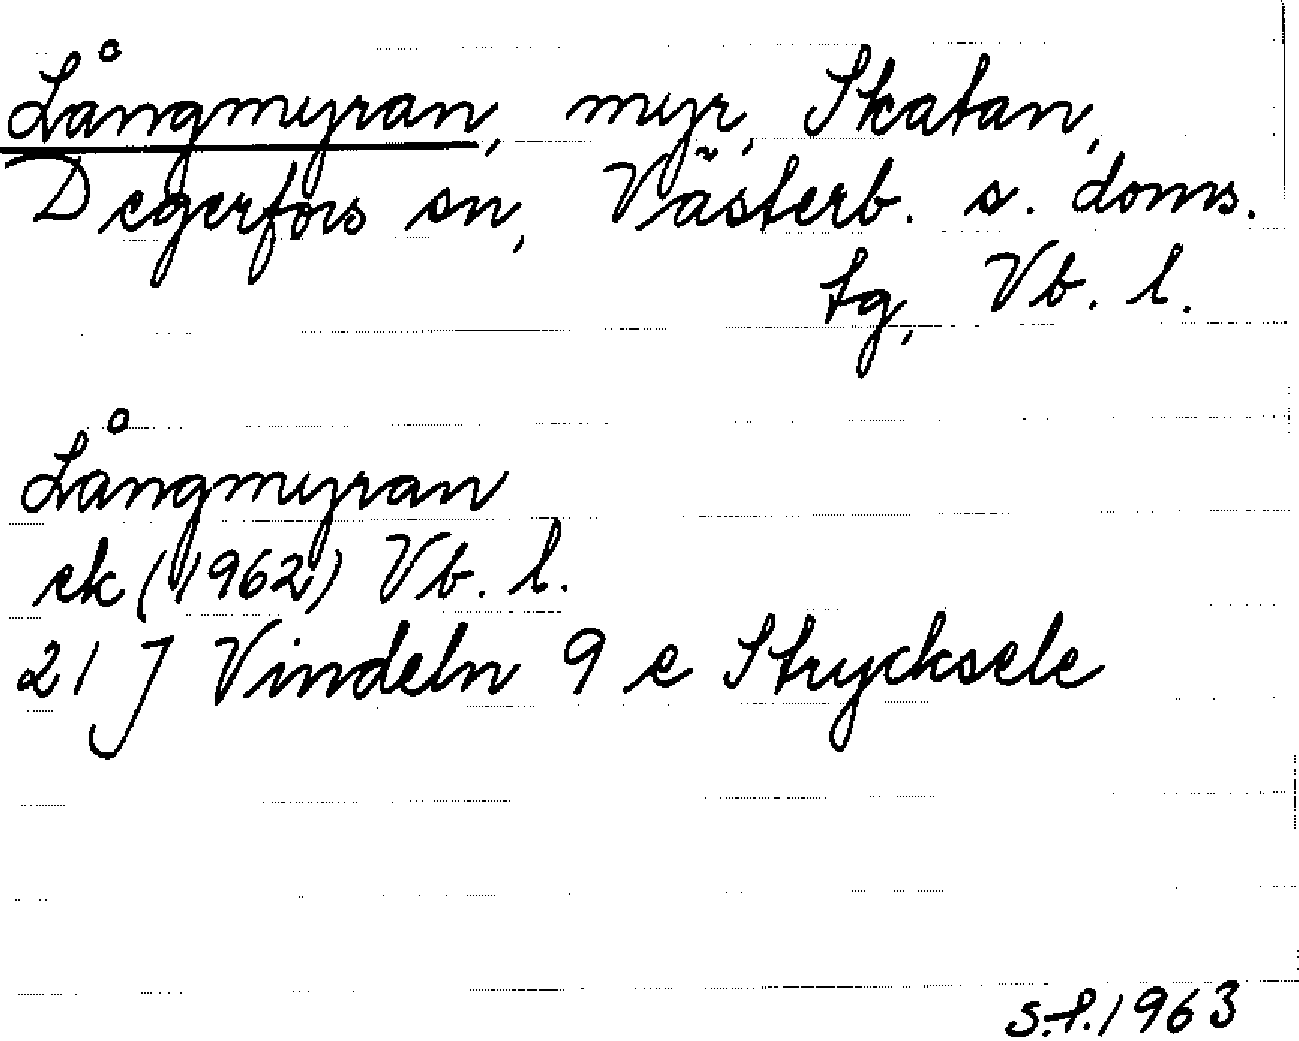 Långmyran, myr, Skatan,
Degerfors sn, Västerb. s. doms.
tg, Vb. l.
Långmyran
ek (1962) Vb. l.
21 J Vindeln 9 e Strycksele
s.f. 1963